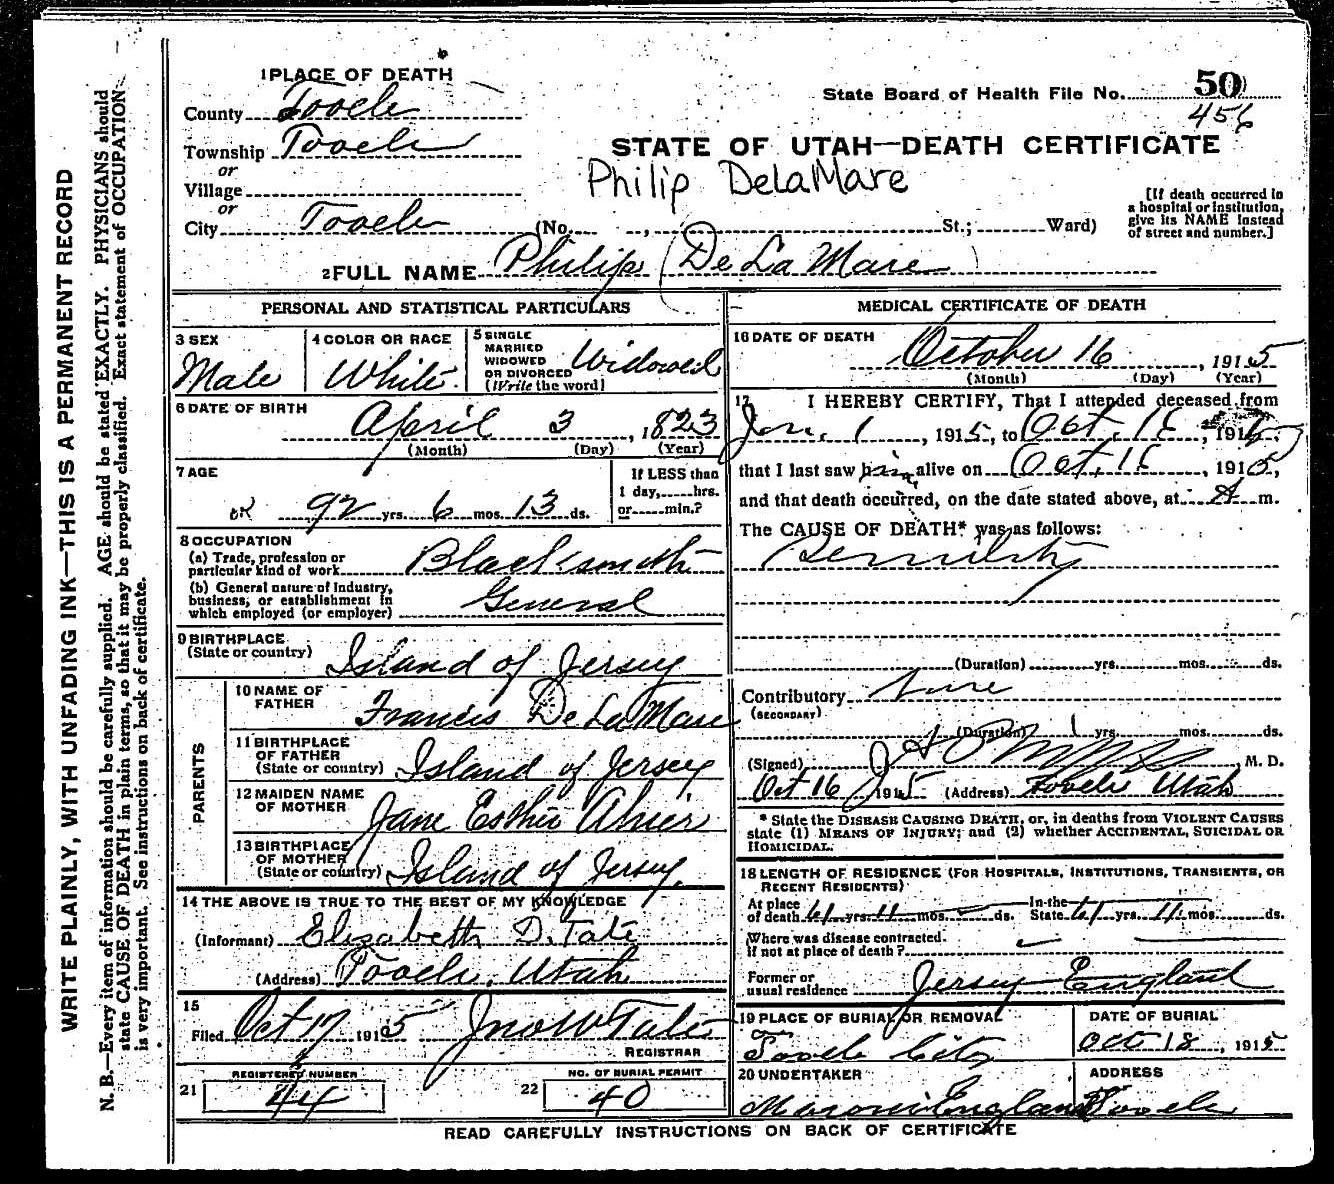 WRITE PLAINLY, WITH UNFADING INK—THIS IS A PERMANENT RECORD
N. B.—Every item of information should be carefully supplied. AGE should be stated EXACTLY. PHYSICIANS should
state CAUSE OF DEATH in plain terms, so that it may be properly classified. Exact statement of OCCUPATION
is very important. See instructions on back of certificate.
1 PLACE OF DEATH
County Tooele
Township Tooele
or
Village
or
City Tooele
State Board of Health File No. 50
456
STATE OF UTAH—DEATH CERTIFICATE
Philip DeLaMare
(No. , St.; Ward)
[If death occurred in
a hospital or institution,
give its NAME instead
of street and number.]
2 FULL NAME Philip (De La Mare)
PERSONAL AND STATISTICAL PARTICULARS
3 SEX
Male
4 COLOR OR RACE
White
5 SINGLE
MARRIED
WIDOWED
OR DIVORCED
(Write the word)
Widowed
6 DATE OF BIRTH
April 3, 1823
(Month) (Day) (Year)
7 AGE
OK 92 yrs. 6 mos. 13 ds.
If LESS than
1 day, hrs.
or min.?
8 OCCUPATION
(a) Trade, profession or
particular kind of work Blacksmith
(b) General nature of Industry,
business, or establishment in
which employed (or employer) General
9 BIRTHPLACE
(State or country) Island of Jersey
PARENTS
10 NAME OF
FATHER Francis De La Mare
11 BIRTHPLACE
OF FATHER
(State or country) Island of Jersey
12 MAIDEN NAME
OF MOTHER Jane Esther Ahier
13 BIRTHPLACE
OF MOTHER
(State or country) Island of Jersey.
14 THE ABOVE IS TRUE TO THE BEST OF MY KNOWLEDGE
(Informant) Elizabeth D. Tate
(Address) Tooele, Utah
15
Filed Oct 17 1915 Jno W Tate
REGISTRAR
21 REGISTERED NUMBER
44
22 NO. OF BURIAL PERMIT
40
MEDICAL CERTIFICATE OF DEATH
16 DATE OF DEATH
October 16, 1915
(Month) (Day) (Year)
17 I HEREBY CERTIFY, That I attended deceased from
Jan. 1, 1915, to Oct. 16, 1915
that I last saw him alive on Oct. 16, 1915,
and that death occurred, on the date stated above, at A m.
The CAUSE OF DEATH* was as follows:
(Duration) yrs. mos. ds.
Contributory
(SECONDARY)
(Duration) 1 yrs. mos. ds.
(Signed) , M. D.
Oct 16 1915 (Address) Tooele Utah
* State the DISEASE CAUSING DEATH, or, in deaths from VIOLENT CAUSES
state (1) MEANS OF INJURY; and (2) whether ACCIDENTAL, SUICIDAL OR
HOMICIDAL.
18 LENGTH OF RESIDENCE (FOR HOSPITALS, INSTITUTIONS, TRANSIENTS, OR
RECENT RESIDENTS)
At place
of death 61 yrs. 11 mos. ds.
In the
State 61 yrs. 11 mos. ds.
Where was disease contracted.
If not at place of death?
Former or
usual residence Jersey England
19 PLACE OF BURIAL OR REMOVAL
Tooele City
DATE OF BURIAL
Oct 18, 1915
20 UNDERTAKER
Maroni England
ADDRESS
Tooele
READ CAREFULLY INSTRUCTIONS ON BACK OF CERTIFICATE